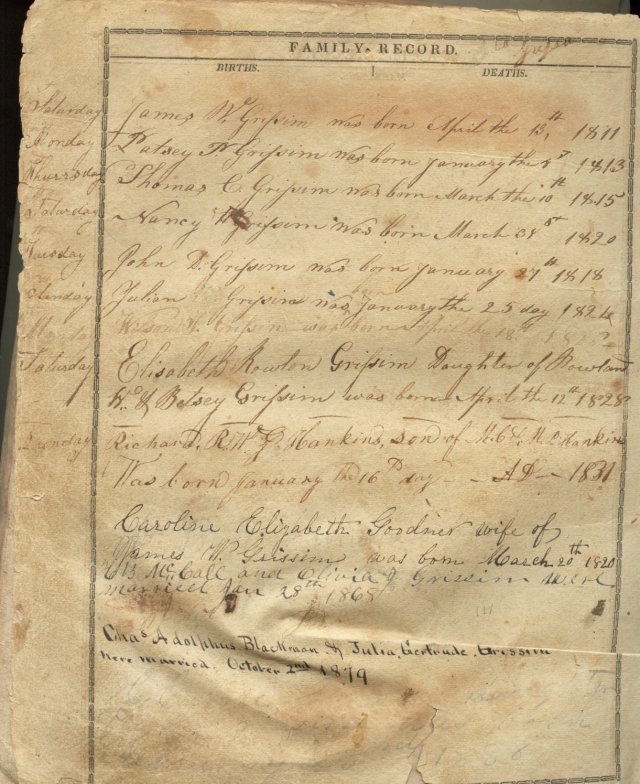 FAMILY RECORD.
BIRTHS. DEATHS.
Saturday James W. Grissim was born April the 13th, 1811
Monday Patsey P. Grissim was born January the 1813
Thursday Thomas C. Grissim was born March the 10th 1815
Saturday Nancy Grissim was born March 1820
Tuesday John D. Grissim was born January 27th 1818
Sunday Julian Grissim was January the 25 day 1824
Grissim was born April the 18th
Saturday Elisabeth Rowlon Grissim Daughter of Rowlan
Wm & Betsey Grissim was born April the 12th 1828
Sunday Richard, R. W. G. Hankins, son of M. C. & M. P. Hankins
Was born January the 16th day - AD - 1831
Caroline Elizabeth Goodner wife of
James W. Grissim was born March 20th 1820
McCall and Olivia J Grissim were
married Jan 28th 1868
Chas Adolphus Blackman & Julia, Gertrude, Grissim
were married. October 2nd 1879